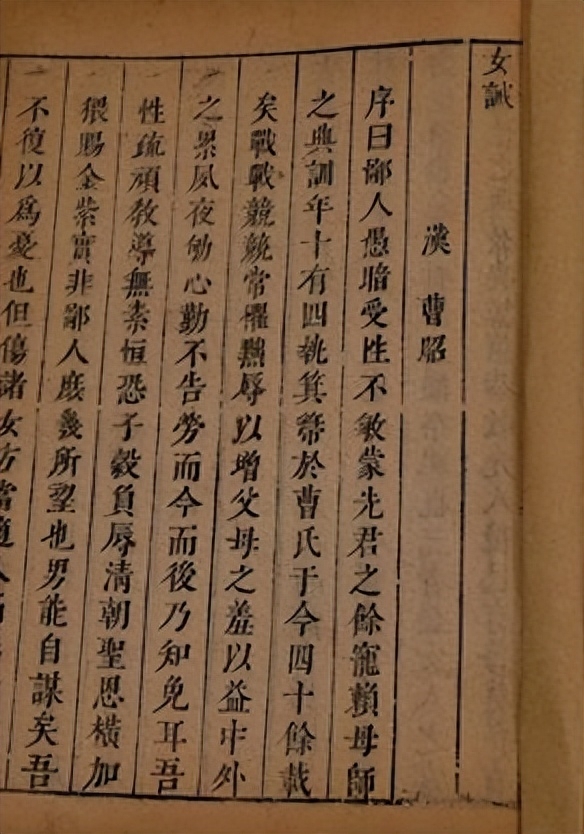 女誡
漢 曹昭
序曰鄙人愚暗受性不敏蒙先君之餘寵賴母師
之典訓年十有四執箕箒於曹氏于今四十餘載
矣戰戰兢兢常懼黜辱以增父母之羞以益中外
之累夙夜劬心勤不告勞而今而後乃知免耳吾
性疏頑教導無素恒恐子穀負辱清朝聖恩橫加
猥賜金紫實非鄙人庶幾所望也男能自謀矣吾
不復以爲憂也但傷諸女方當適人